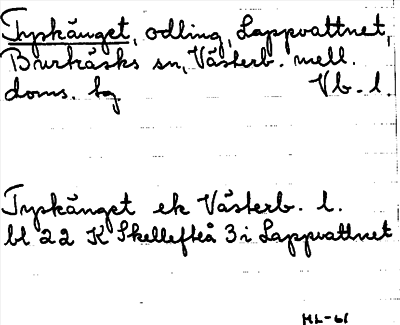 Tyskänget, odling, Lappvattnet,
Burträsks sn, Västerb. mell.
doms. bg. Vb. l.
Tyskänget ek Västerb. l.
bl 22 K Skellefteå 3 i Lappvattnet
ML-61